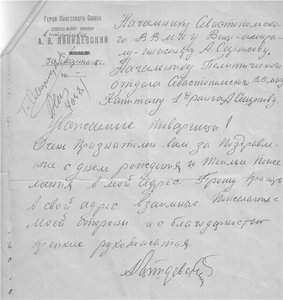 ГЕРОЙ СОВЕТСКОГО СОЮЗА
ГЕНЕРАЛ МАЙОР АВИАЦИИ
А. В. ЛЯПИДЕВСКИЙ
Начальнику Севастопольского
ВВМИУ Вице-адмира-
лу-инженеру А Саркисову.
Начальнику Политического
отдела Севастопольского ВВМИУ
Капитану 1го ранга А Смирнову
№
Уважаемые товарищи!
Очень Признателен вам за Поздравле-
ние с днём рождения и теплые Поже-
лания в мой адрес. Прошу Принять
в свой адрес взаимные Пожелания с
моей стороны и с благодарностью
крепкие рукопожатия.
Ляпидевский